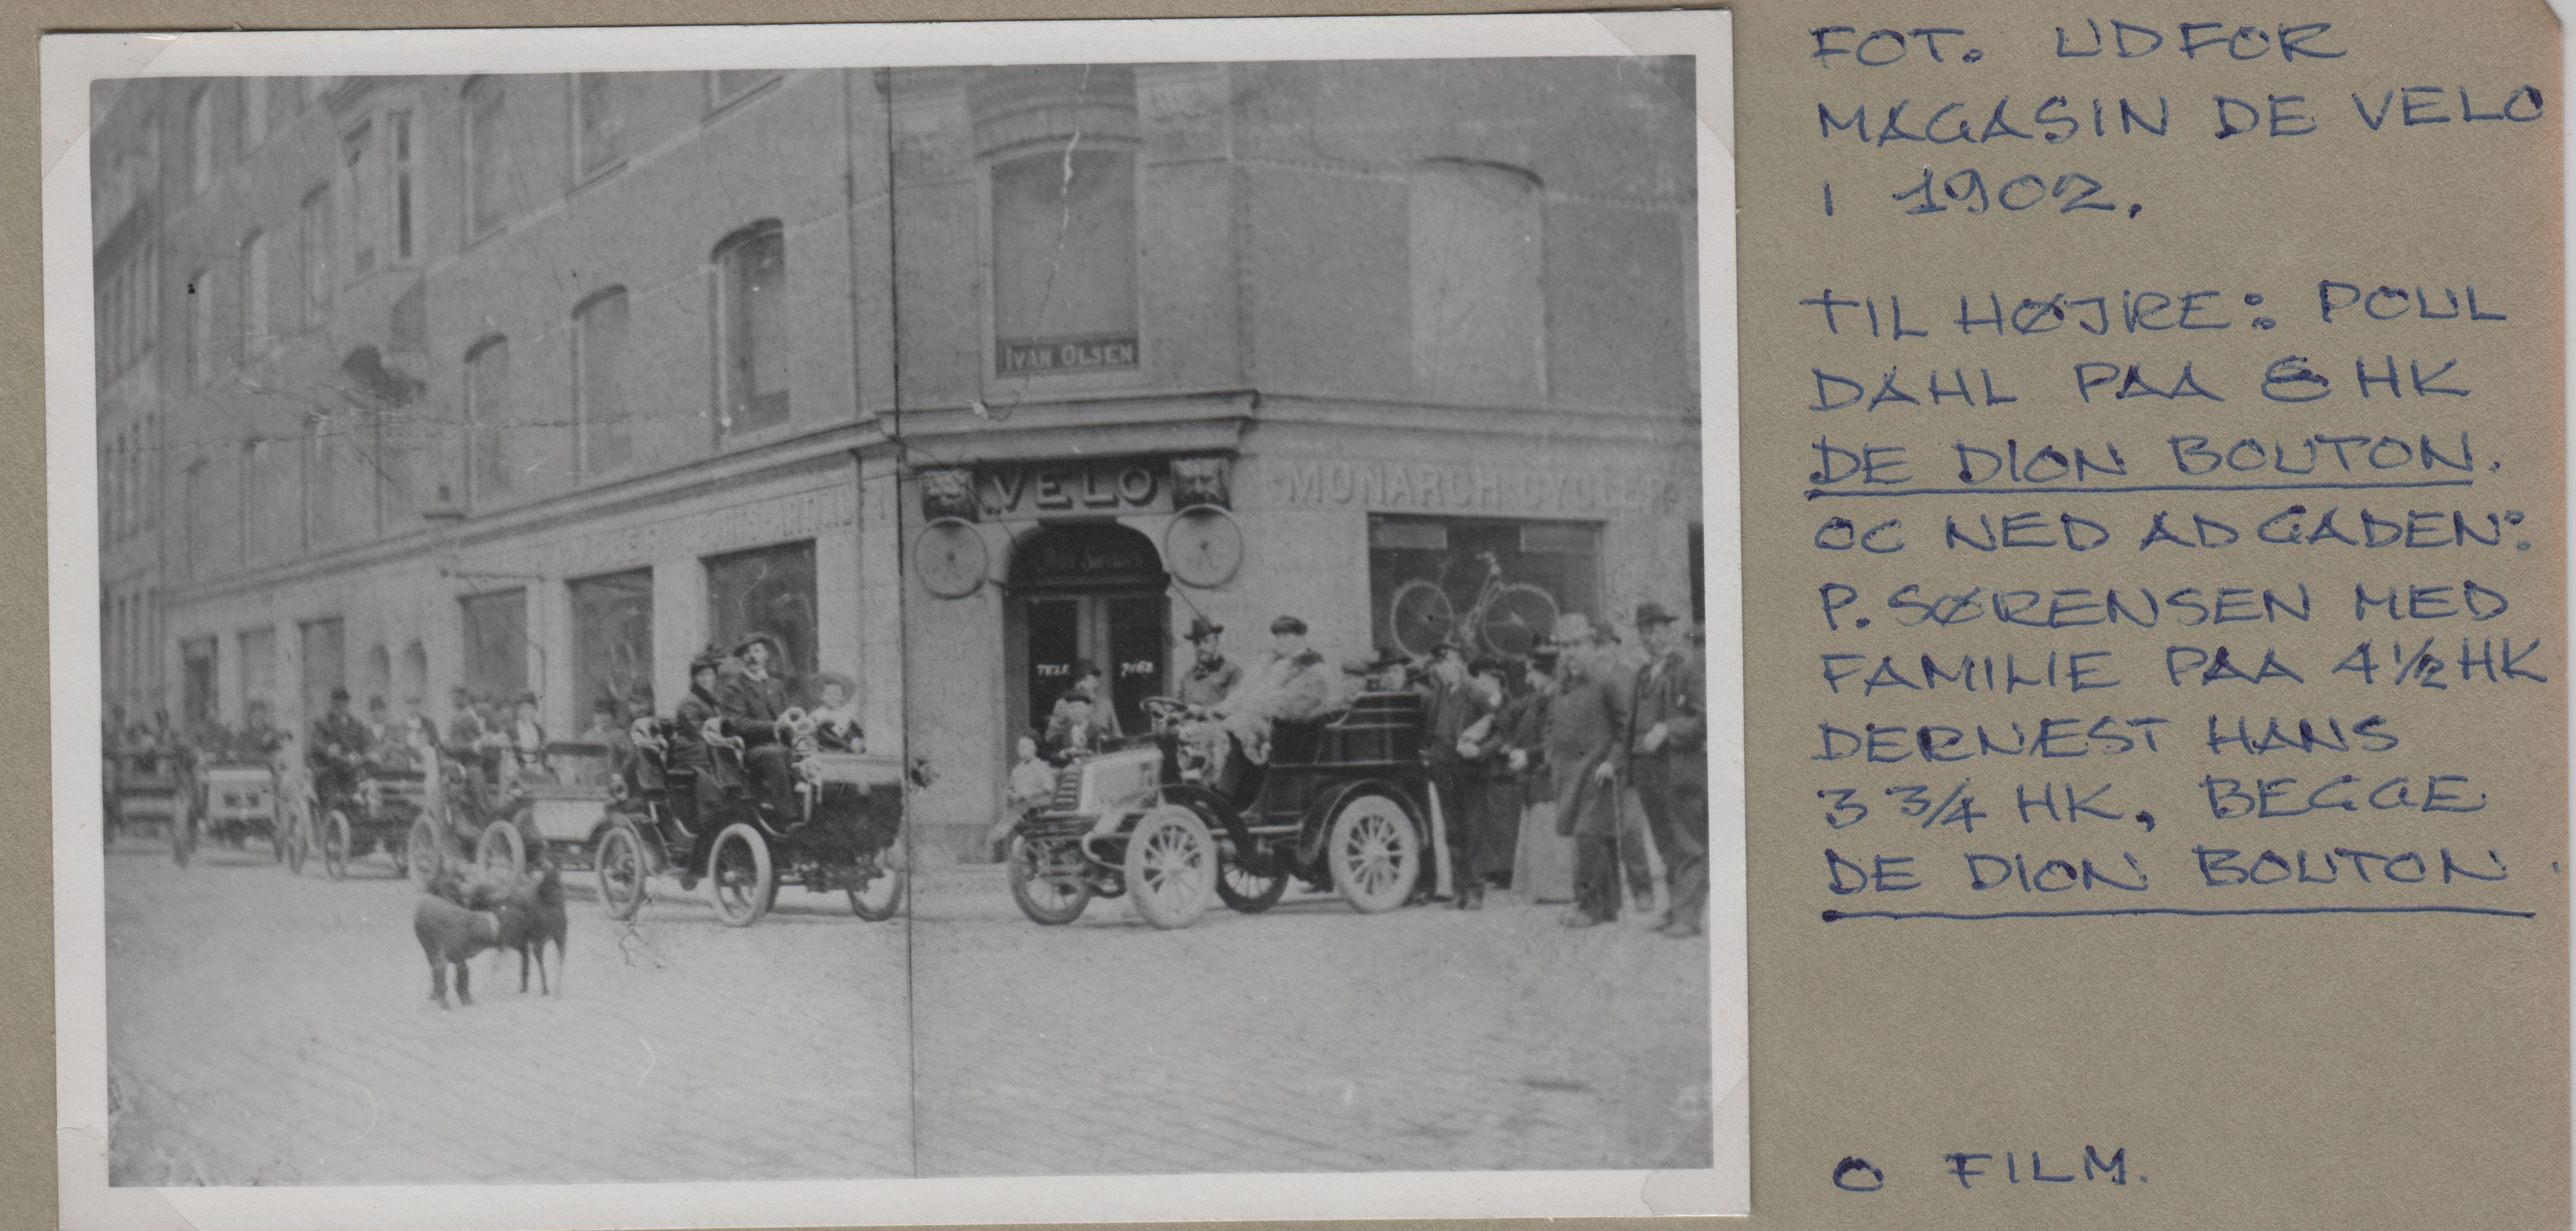 IVAN OLSEN
VELO
MONARCH CYCLER
SPORTS-ARTIKLER
TELF 7162
GOLF
FOT. UDFOR
MAGASIN DE VELO
I 1902.
TIL HØJRE: POUL
DAHL PAA 8 HK
DE DION BOUTON.
OG NED AD GADEN:
P. SØRENSEN MED
FAMILIE PAA 4½ HK
DERNÆST HANS
3 3/4 HK, BEGGE
DE DION BOUTON.
O FILM.